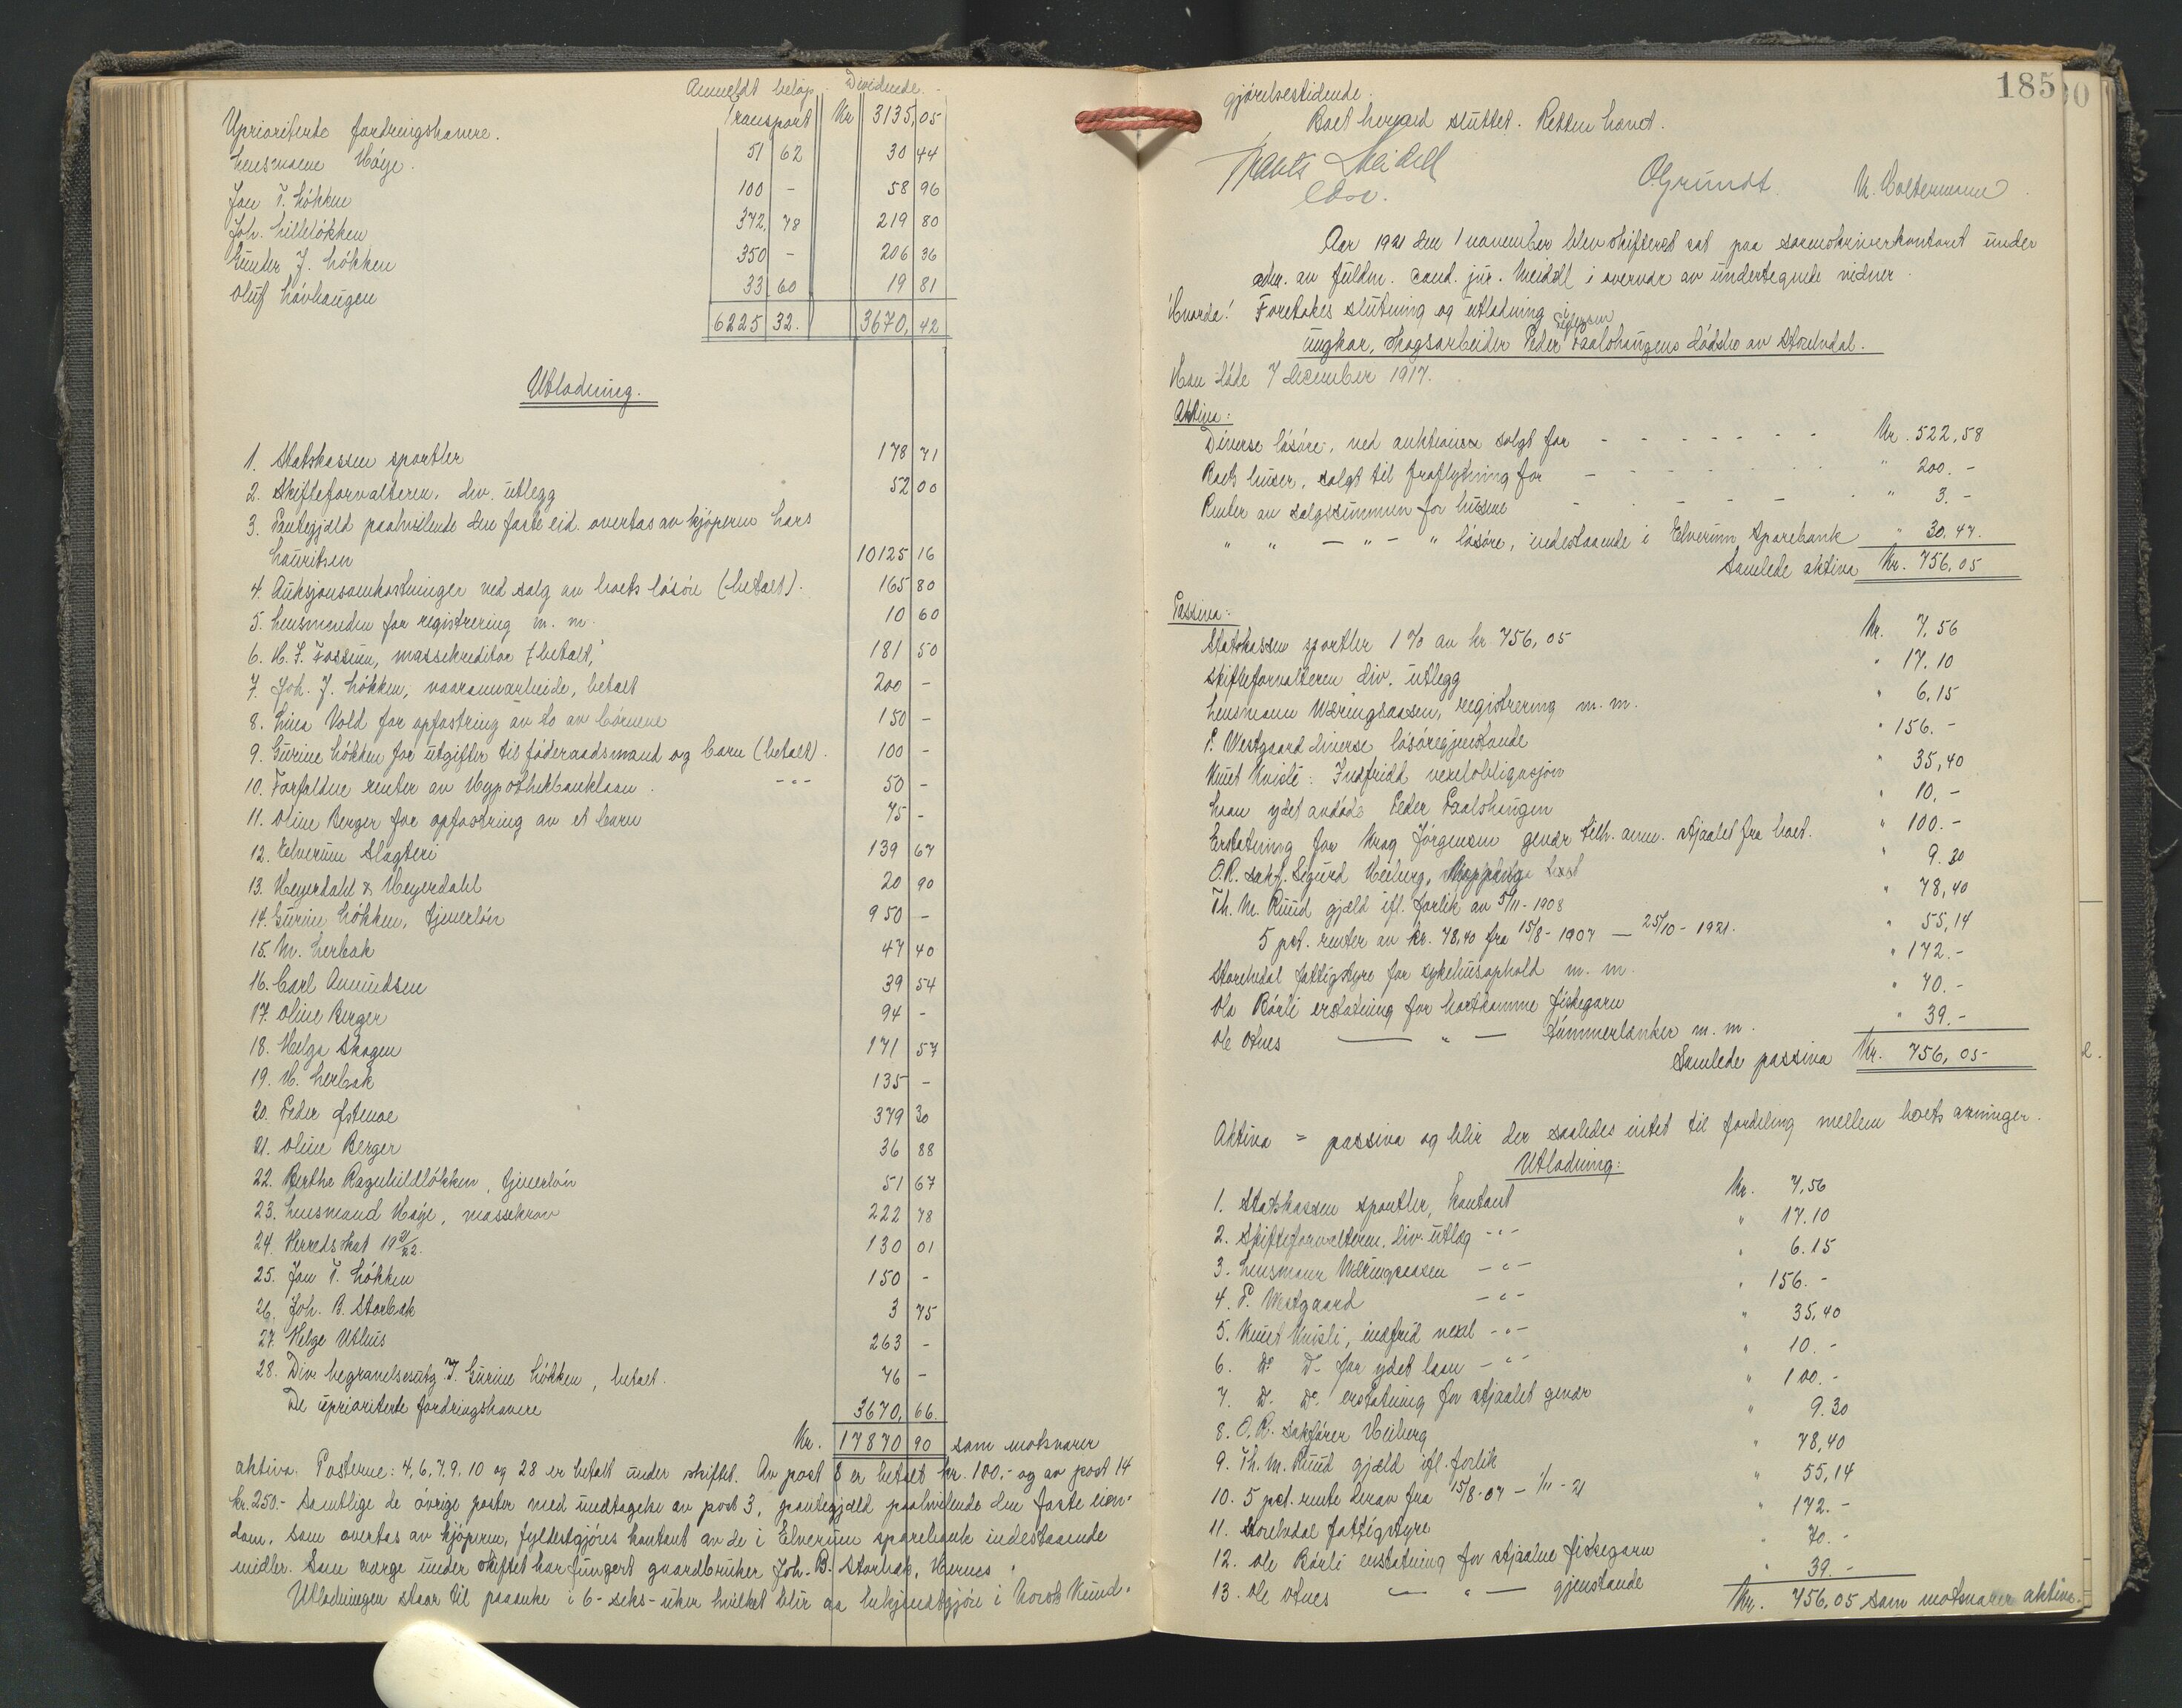 Anmeldt beløp. Dividende.
Uprioriterte fordringshavere. Transport Kr 3135,05
Lensmann Høye. 51 62 30 44
Jon T. Løkken 100 - 58 96
Joh. Lilleløkken 372,78 219 80
Gunder J. Løkken 350 - 206 36
Oluf Løvhaugen 33 60 19 81
6225 32. 3670,42
Utlodning.
1. Statskassen sportler 178 71
2. Skifteforvalteren, div. utlegg 52 00
3. Pantegjæld paahvilende den faste eid. overtas av kjøperen Lars
Lauritsen 10125 16
4. Auksjonsomkostninger ved salg av boets løsøre (betalt). 165 80
5. Lensmanden for registrering m. m. 10 60
6. H. F. Fossum, massekreditor (betalt) 181 50
7. Joh. J. Løkken, vaaronnarbeide, betalt 200 -
8. Lina Vold for opfostring av to av børnene 150 -
9. Gurine Løkken for utgifter til føderaadsmand og barn (betalt). 100 -
10. Forfaldne renter av Hypothekbanklaan. -"- 50 -
11. Oline Berger for opfostring av et barn 75 -
12. Elverum Slagteri 139 67
13. Heyerdahl & Heyerdahl 20 90
14. Gurine Løkken, tjenerløn 950 -
15. M. Lerbak 47 40
16. Carl Amundsen 39 54
17. Oline Berger 94 -
18. Helga Skogen 171 57
19. H. Lerbak 135 -
20. Peder Østenoe 379 30
21. Oline Berger 36 88
22. Berthe Ragnhildløkken, tjenerløn 51 67
23. Lensmand Høye, massekrav 222 78
24. Herredskat 1921/22. 130 01
25. Jon T. Løkken 150 -
26. Joh. B. Storbak 3 75
27. Helge Uthus 263 -
28. Div. begravelsesutg. T. Gurine Løkken, betalt. 76 -
De uprioriterte fordringshavere 3670,66.
Kr. 17870 90 som motsvarer
aktiva. Posterne: 4, 6, 7, 9, 10 og 28 er betalt under skiftet. Av post 8 er betalt kr. 100,- og av post 14
kr. 250.- Samtlige de øvrige poster med undtagelse av post 3, pantegjæld paahvilende den faste eien-
dom, som overtas av kjøperen, fyldestgjøres kontant av de i Elverum sparebank indestaaende
midler. Som verge under skiftet har fungert gaardbruker Joh. B. Storbak, Hernes.
Utlodningen staar til paaanke i 6 - seks - uker hvilket blir at bekjendtgjøre i Norsk Kund-
185
gjørelsestidende.
Boet herved sluttet. Retten hævet.
Frantz Meidell
edov.
O Grundt. K. Woltermann
Aar 1921 den 1 november blev skifteret sat paa sorenskriverkontoret under
adm. av fuldm. cand. jur. Meidell i overvær av undertegnede vidner.
Hvorda! Foretokes slutning og utlodning i
ungkar, skogsarbeider Peder Pedersen Paalshaugens dødsbo av Storelvdal.
Han døde 7 december 1917.
Aktiva:
Diverse løsøre, ved auktioner solgt for - - - - - - - Kr. 522,58
Boets huser, solgt til fraflytning for - - - - - - - " 200.-
Renter av salgssummen for husene - - - - - - " 3.-
" " - " - " løsøre, indestaaende i Elverum Sparebank " 30.47.
Samlede aktiva Kr. 756,05
Passiva:
Statskassen sportler 1 % av kr. 756,05 Kr. 7,56
Skifteforvalteren div. utlegg " 17.10
Lensmann Wæringsaasen, registrering m. m. " 6.15
P. Westgaard diverse løsøregjenstande " 156.-
Knut Kvisle: Indfridd vexelobligasjon " 35,40
Laan ydet avdøde Peder Paalshaugen " 10.-
Erstatning for Krag Jørgensen gevær tilh. ann. stjaalet fra boet. " 100.-
O.R. sakf. Sigurd Heiberg, " 9.30
Th. M. Ruud gjæld ifl. forlik av 5/11-1908 " 78,40
5 pct. renter av kr. 78,40 fra 15/8-1907 - 25/10-1921. " 55,14
Storelvdal fattigstyre for sykehusophold m. m. " 172.-
Ola Børli erstatning for bortkomne fiskegarn " 70.-
Ole Otnes - " - tømmerlænker m. m. " 39.-
Samlede passiva Kr. 756,05-
Aktiva = passiva og blir der saaledes intet til fordeling mellem boets arvinger.
Utlodning:
1. Statskassen sportler, kontant Kr. 7,56
2. Skifteforvalteren, div. utlæg -"- " 17.10
3. Lensmann Wæringsaasen -"- " 6.15
4. P. Westgaard -"- " 156.-
5. Knut Kvisli, indfrid vexel -"- " 35,40
6. Do Do for ydet laan -"- " 10.-
7. Do Do erstatning for stjaalet gevær " 100.-
8. O.R. Sakfører Heiberg " 9.30
9. Th. M. Ruud gjæld ifl. forlik " 78,40
10. 5 pct. rente derav fra 15/8-07 - 1/11-21 " 55,14
11. Storelvdal fattigstyre " 172.-
12. Ole Børli erstatning for stjaalne fiskegarn " 70.-
13. Ole Otnes - " - gjenstande " 39.-
Kr. 756.05 som motsvarer aktiva.